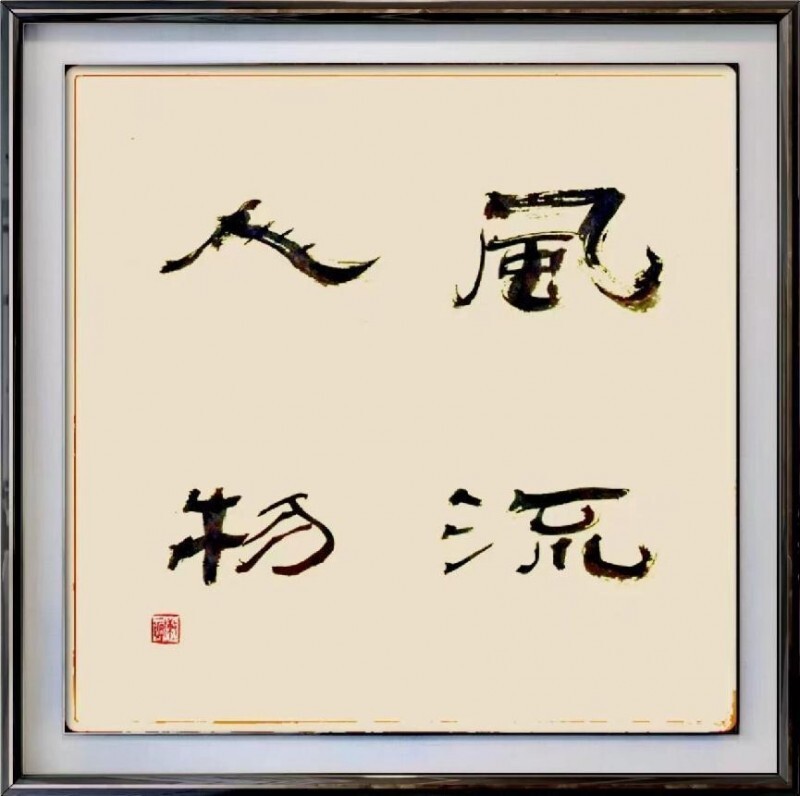 風流
人物